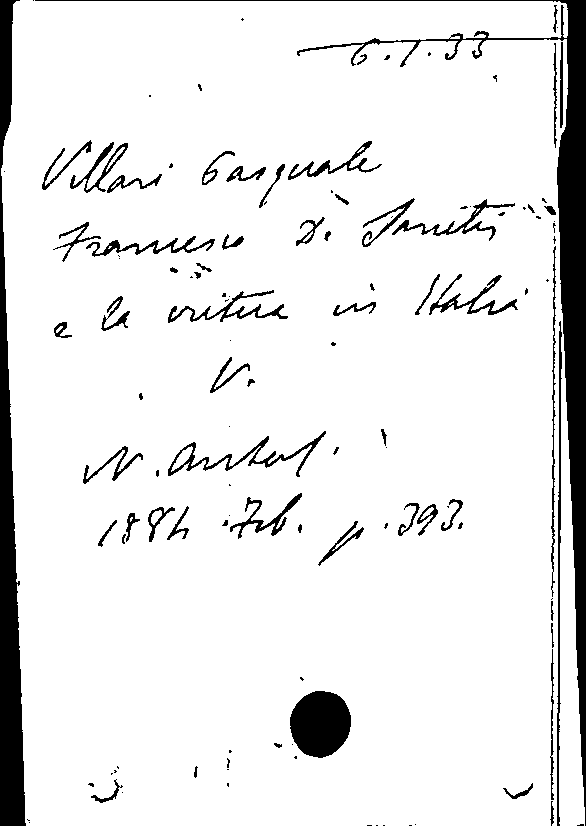 6.1.33
Villari Pasquale
Francesco De Sanctis
e la critica in Italia
V.
N. Antol.
1884 Feb. p. 393.